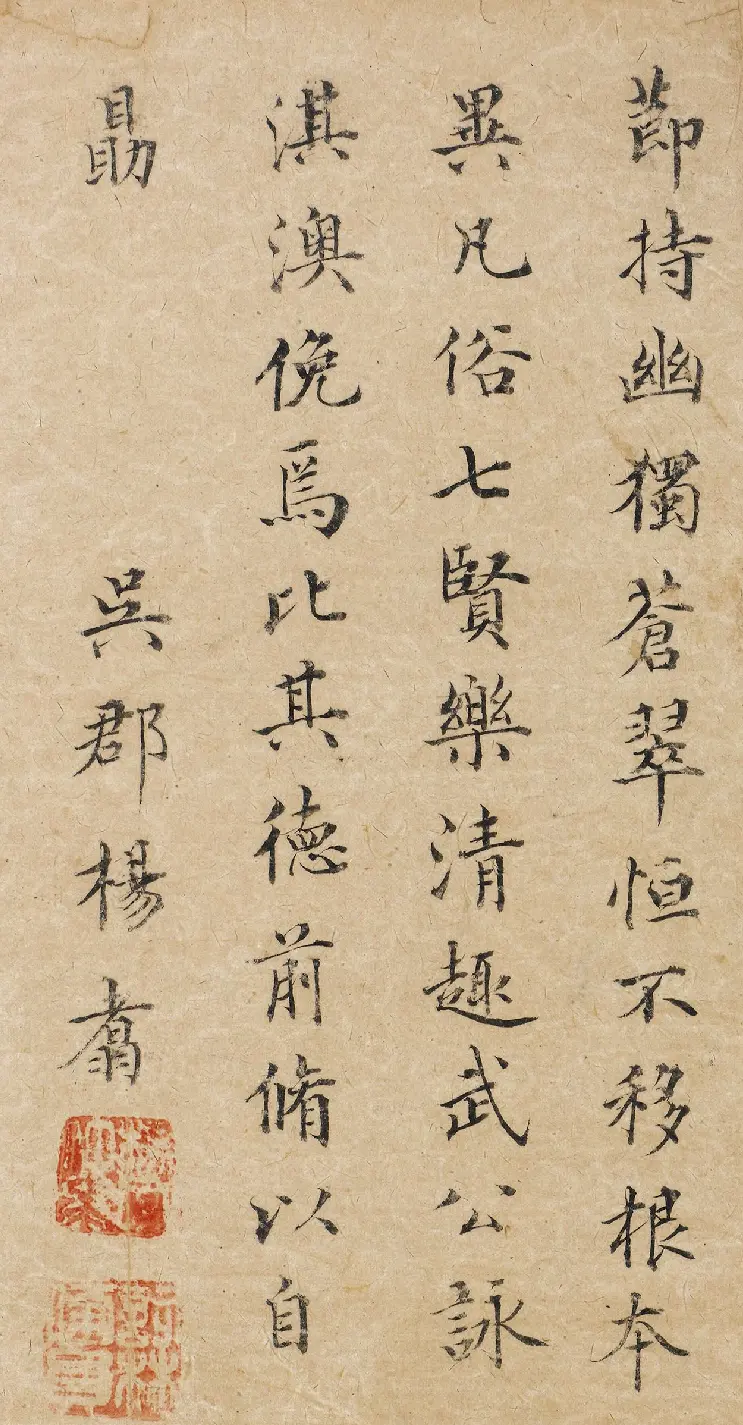 莭持幽獨蒼翠恒不移根本
異凡俗七賢樂清趣武公詠
淇澳俛焉比其德前脩以自
勗
吳郡楊翥